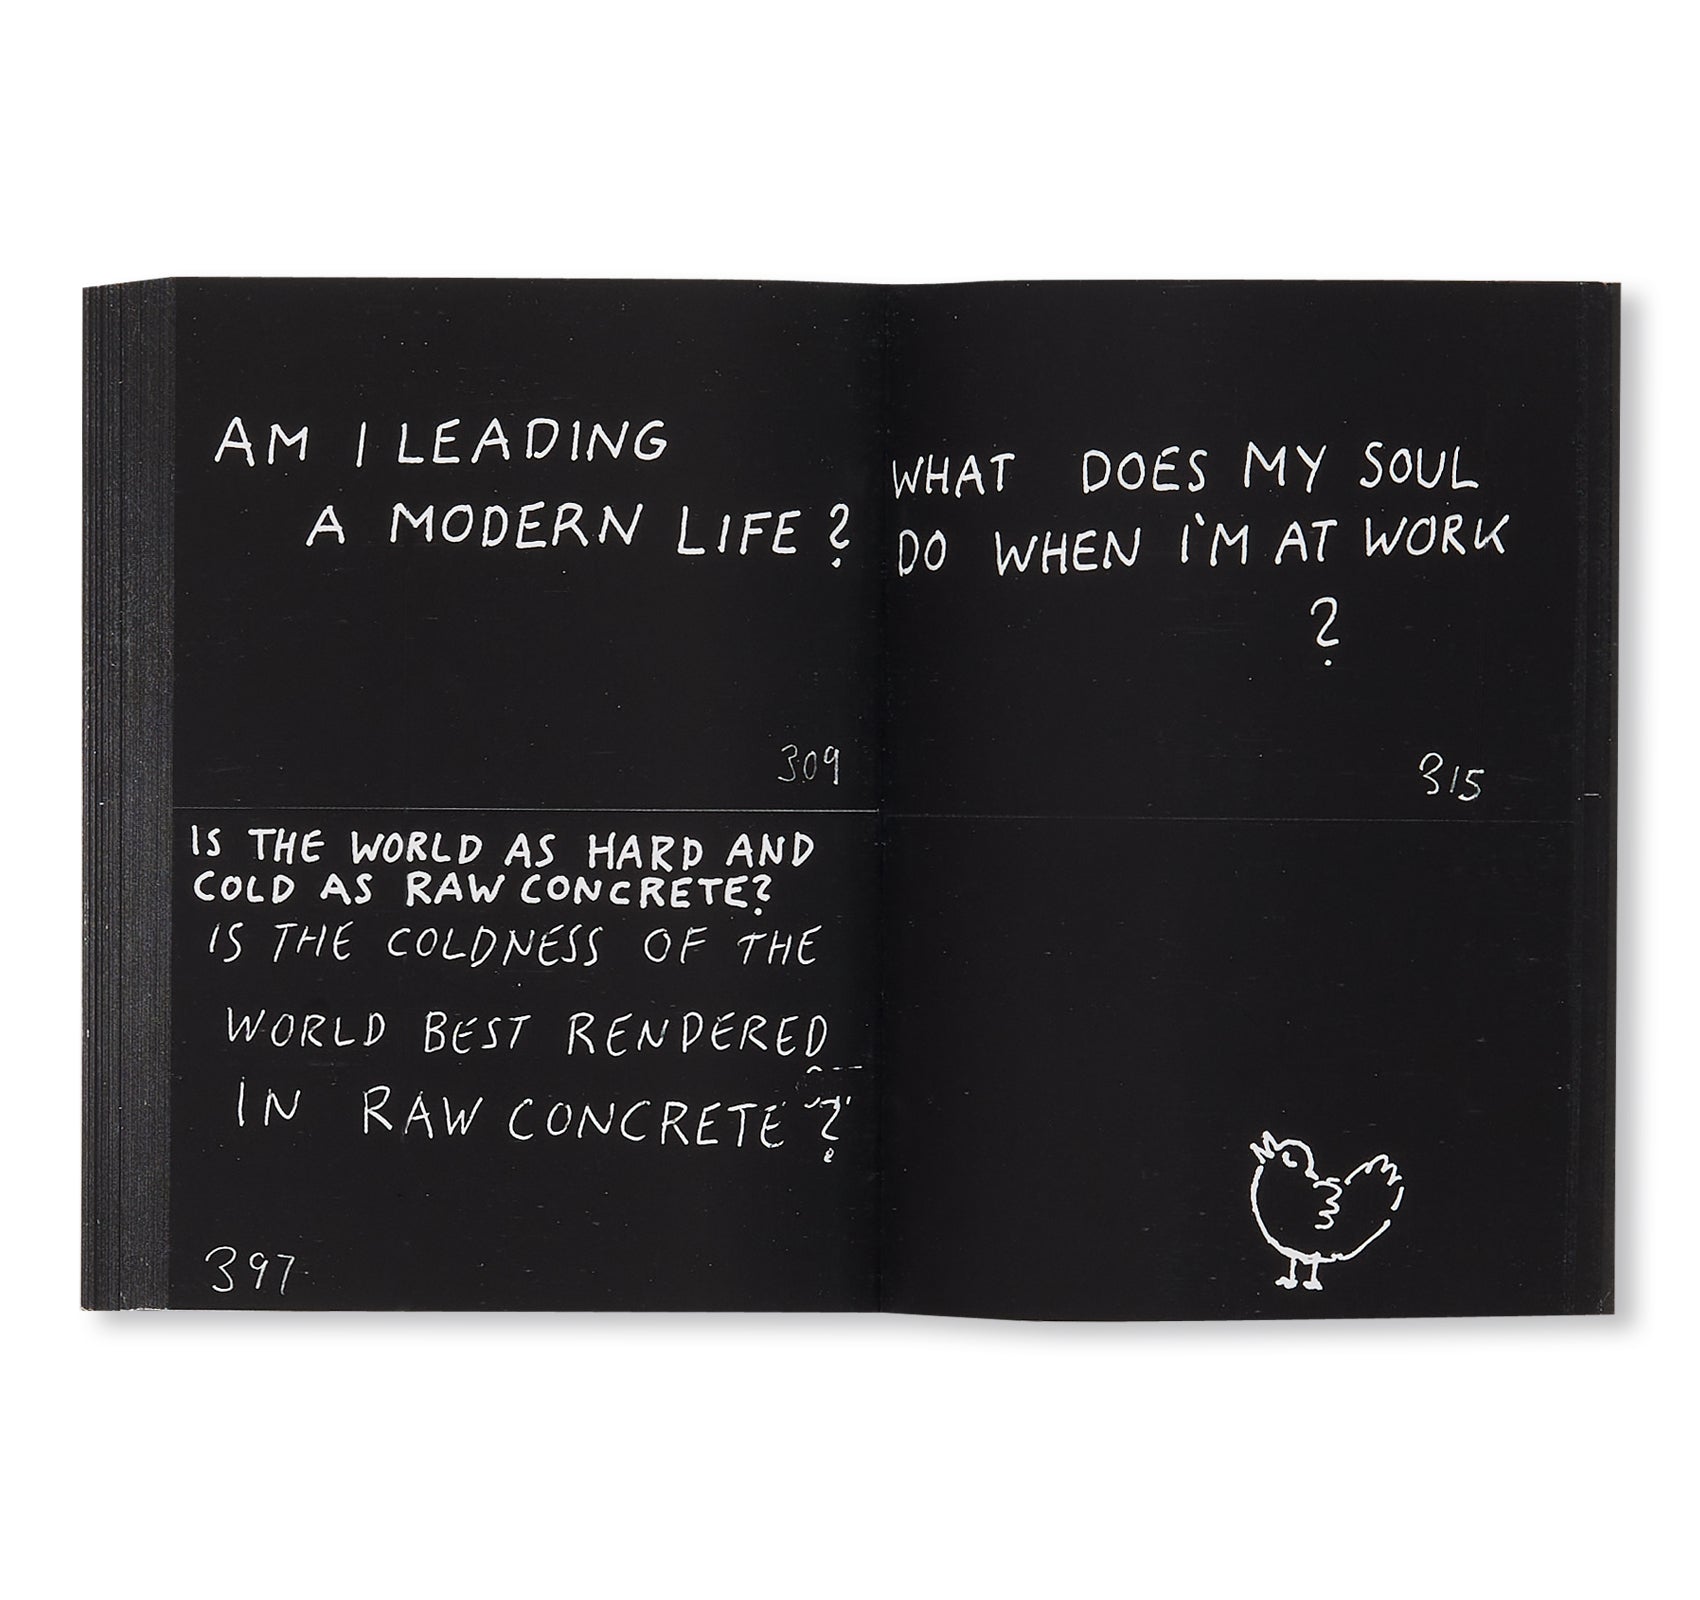 AM I LEADING
A MODERN LIFE?
309
IS THE WORLD AS HARD AND
COLD AS RAW CONCRETE?
IS THE COLDNESS OF THE
WORLD BEST RENDERED
IN RAW CONCRETE?
397
WHAT DOES MY SOUL
DO WHEN I'M AT WORK
?
315